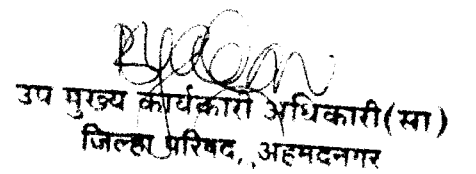 उप मुख्य कार्यकारी अधिकारी(सा)
जिल्हा परिषद, अहमदनगर